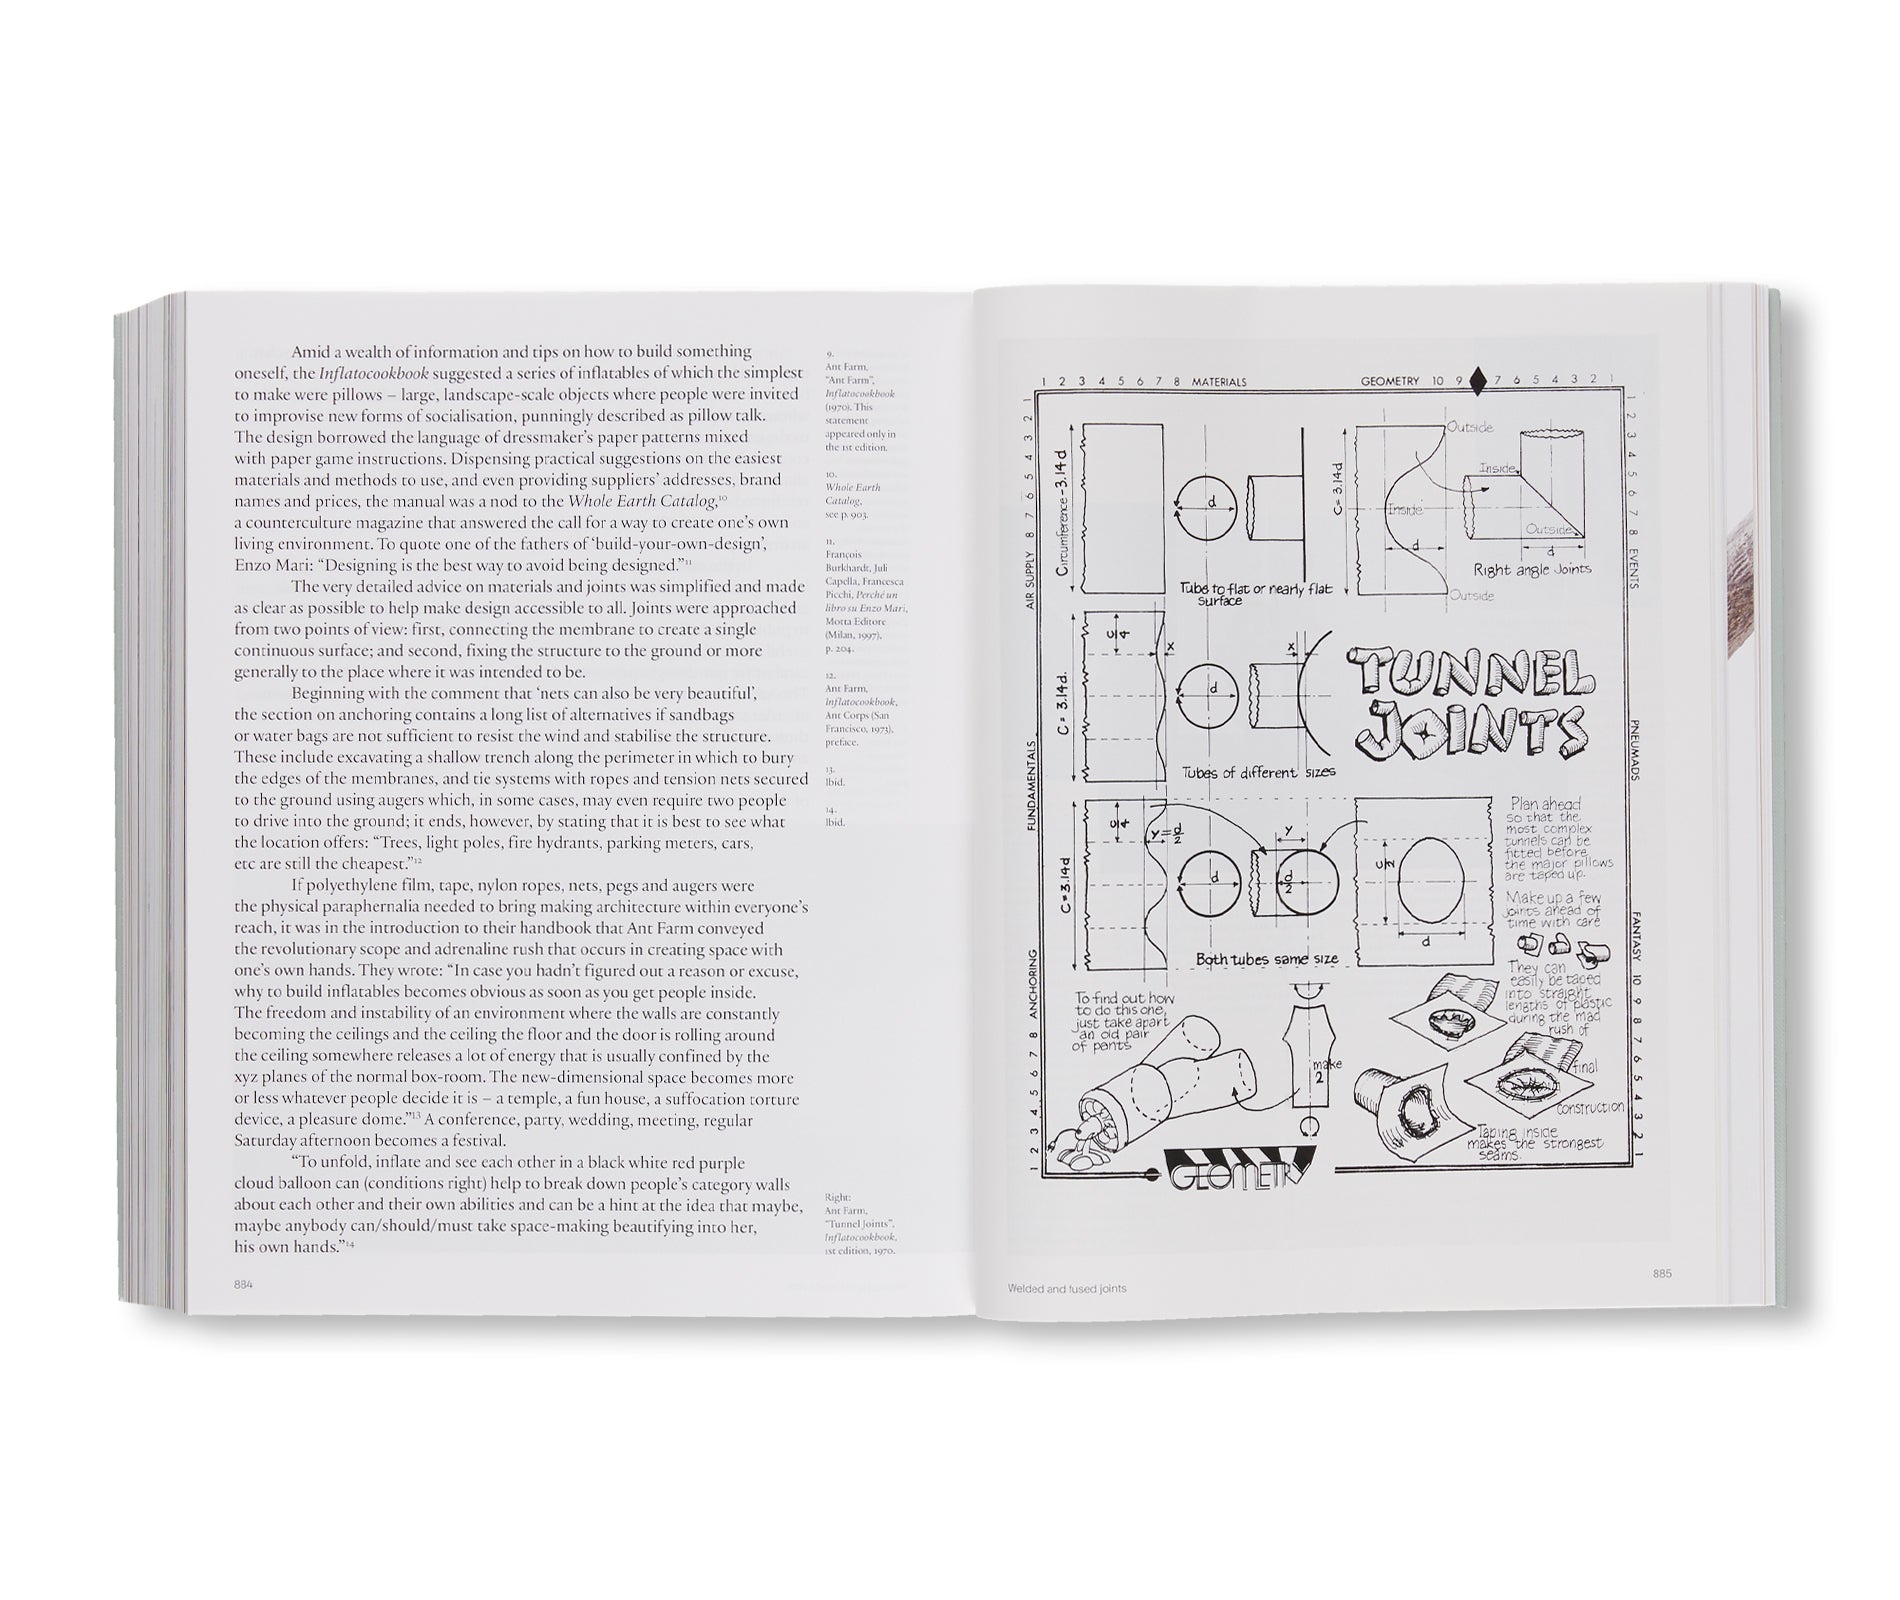 Amid a wealth of information and tips on how to build something
oneself, the Inflatocookbook suggested a series of inflatables of which the simplest
to make were pillows – large, landscape-scale objects where people were invited
to improvise new forms of socialisation, punningly described as pillow talk.
The design borrowed the language of dressmaker's paper patterns mixed
with paper game instructions. Dispensing practical suggestions on the easiest
materials and methods to use, and even providing suppliers' addresses, brand
names and prices, the manual was a nod to the Whole Earth Catalog,10
a counterculture magazine that answered the call for a way to create one's own
living environment. To quote one of the fathers of 'build-your-own-design',
Enzo Mari: “Designing is the best way to avoid being designed.”11
The very detailed advice on materials and joints was simplified and made
as clear as possible to help make design accessible to all. Joints were approached
from two points of view: first, connecting the membrane to create a single
continuous surface; and second, fixing the structure to the ground or more
generally to the place where it was intended to be.
Beginning with the comment that 'nets can also be very beautiful',
the section on anchoring contains a long list of alternatives if sandbags
or water bags are not sufficient to resist the wind and stabilise the structure.
These include excavating a shallow trench along the perimeter in which to bury
the edges of the membranes, and tie systems with ropes and tension nets secured
to the ground using augers which, in some cases, may even require two people
to drive into the ground; it ends, however, by stating that it is best to see what
the location offers: “Trees, light poles, fire hydrants, parking meters, cars,
etc are still the cheapest.”12
If polyethylene film, tape, nylon ropes, nets, pegs and augers were
the physical paraphernalia needed to bring making architecture within everyone's
reach, it was in the introduction to their handbook that Ant Farm conveyed
the revolutionary scope and adrenaline rush that occurs in creating space with
one's own hands. They wrote: “In case you hadn't figured out a reason or excuse,
why to build inflatables becomes obvious as soon as you get people inside.
The freedom and instability of an environment where the walls are constantly
becoming the ceilings and the ceiling the floor and the door is rolling around
the ceiling somewhere releases a lot of energy that is usually confined by the
xyz planes of the normal box-room. The new-dimensional space becomes more
or less whatever people decide it is – a temple, a fun house, a suffocation torture
device, a pleasure dome.”13 A conference, party, wedding, meeting, regular
Saturday afternoon becomes a festival.
“To unfold, inflate and see each other in a black white red purple
cloud balloon can (conditions right) help to break down people's category walls
about each other and their own abilities and can be a hint at the idea that maybe,
maybe anybody can/should/must take space-making beautifying into her,
his own hands.”14
884
9.
Ant Farm,
“Ant Farm”,
Inflatocookbook
(1970). This
statement
appeared only in
the 1st edition.
10.
Whole Earth
Catalog,
see p. 903.
11.
François
Burkhardt, Juli
Capella, Francesca
Picchi, Perché un
libro su Enzo Mari,
Motta Editore
(Milan, 1997),
p. 204.
12.
Ant Farm,
Inflatocookbook,
Ant Corps (San
Francisco, 1973),
preface.
13.
Ibid.
14.
Ibid.
Right:
Ant Farm,
“Tunnel Joints”,
Inflatocookbook,
1st edition, 1970.
1 2 3 4 5 6 7 8 MATERIALS
GEOMETRY 10 9 7 6 5 4 3 2 1
1 2 3 4 5 6 7 8 ANCHORING
FUNDAMENTALS
AIR SUPPLY 8 7 6 5 4 3 2 1
1 2 3 4 5 6 7 8 EVENTS
PNEUMADS
FANTASY 10 9 8 7 6 5 4 3 2 1
Circumference - 3.14 d
d
Tube to flat or nearly flat
surface
C = 3.14d
Outside
Inside
d
Outside
Inside
Outside
d
Right angle Joints
C = 3.14d.
C/4
x
d
x
Tubes of different sizes
TUNNEL
JOINTS
C = 3.14d
C/4
y = d/2
d
y
d/2
C/2
d
Both tubes same size
Plan ahead
so that the
most complex
tunnels can be
fitted before
the major pillows
are taped up.
Make up a few
joints ahead of
time with care
They can
easily be taped
into straight
lengths of plastic
during the mad
rush of
final
construction
Taping inside
makes the strongest
seams.
To find out how
to do this one,
just take apart
an old pair
of pants
make
2
GEOMETRY
Welded and fused joints
885